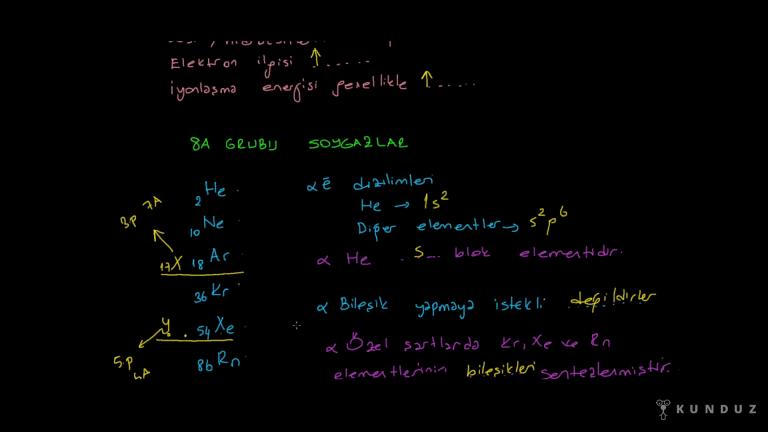 Elektron ilgisi ↑ . . . . .
iyonlaşma enerjisi genellikle ↑ . . . .
8A GRUBU SOYGAZLAR
2He
10Ne
17X 18Ar
36Kr
y . 54Xe
86Rn
3P 7A
5.P 4A
α ē dizilimleri
He → 1s²
Diğer elementler → s²p⁶
α He . s... blok elementidir.
α Bileşik yapmaya istekli değildirler
α Özel şartlarda Kr, Xe ve Rn
elementlerinin bileşikleri sentezlenmiştir.
KUNDUZ